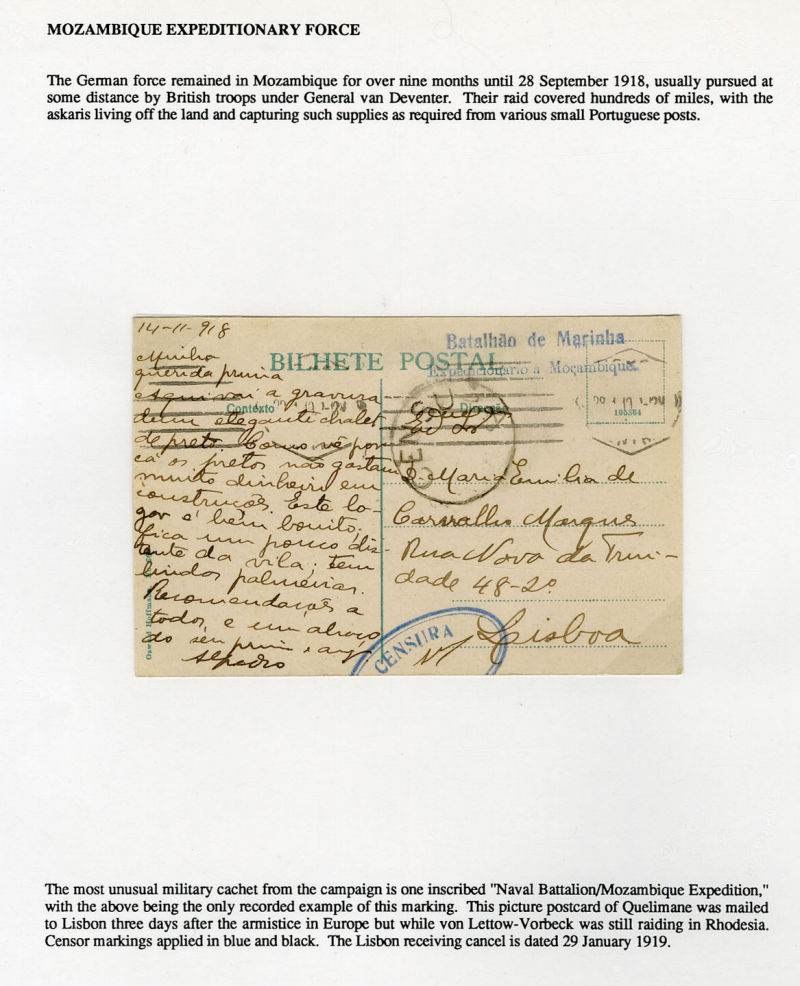 MOZAMBIQUE EXPEDITIONARY FORCE
The German force remained in Mozambique for over nine months until 28 September 1918, usually pursued at
some distance by British troops under General van Deventer. Their raid covered hundreds of miles, with the
askaris living off the land and capturing such supplies as required from various small Portuguese posts.
14-11-918
Minha
querida prima
Aqui vai a gravura
dum elegante chalet
de preto. Como vê por
cá os pretos não gastam
muito dinheiro em
construções. Este lo-
gar é bem bonito;
fica um pouco dis-
tante da vila; tem
lindas palmeiras.
Recomendações a
todos, e um abraço
do seu primo e
BILHETE POSTAL
Contexto
Direcção
Batalhão de Marinha
Expedicionario a Moçambique
105364
D. Maria Emilia de
Carvalho Marques
Rua Nova da Trin-
dade 48-2º
Lisboa
CENSURA
The most unusual military cachet from the campaign is one inscribed "Naval Battalion/Mozambique Expedition,"
with the above being the only recorded example of this marking. This picture postcard of Quelimane was mailed
to Lisbon three days after the armistice in Europe but while von Lettow-Vorbeck was still raiding in Rhodesia.
Censor markings applied in blue and black. The Lisbon receiving cancel is dated 29 January 1919.